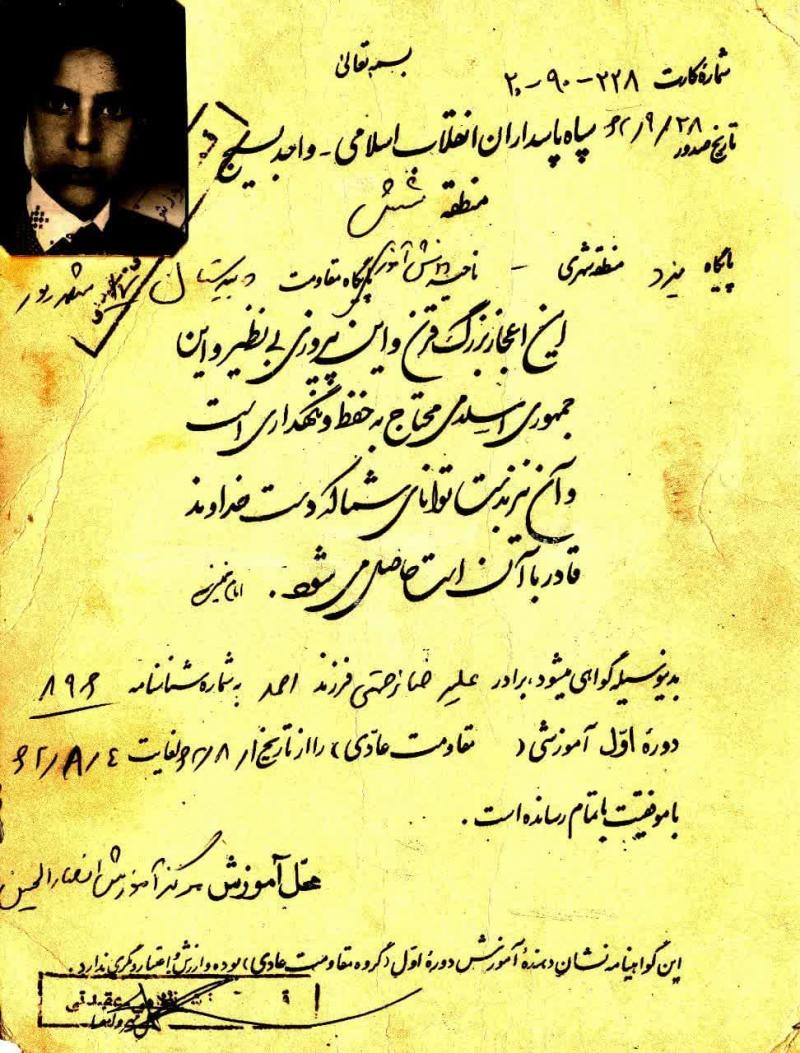 بسمه تعالی
شماره کارت ۲۲۸-۹۰-۲۰
تاریخ صدور ۶۲/۹/۲۸
سپاه پاسداران انقلاب اسلامی - واحد بسیج
منطقه شش
پایگاه یزد منطقه شهری - ناحیه دانش آموزی پایگاه مقاومت دبیرستان
این اعجاز بزرگ قرن و این پیروزی بی نظیر و این
جمهوری اسلامی محتاج به حفظ و نگهداری است
و آن نیز بدست توانای شما که دست خداوند
قادر با آن است حاصل می شود. امام خمینی
بدینوسیله گواهی میشود، برادر علیرضا زحمتی فرزند احمد به شماره شناسنامه ۸۹۶
دورهٔ اوّل آموزشی (مقاومت عادّی) را از تاریخ ۶۲/۸/۱ لغایت ۶۲/۸/۴
با موفقیت باتمام رسانده است.
محل آموزش مرکز آموزش انصار الحسین
این گواهینامه نشان دهندهٔ آموزش دورهٔ اوّل (گروه مقاومت عادی) بوده و ارزش و اعتبار دیگری ندارد.